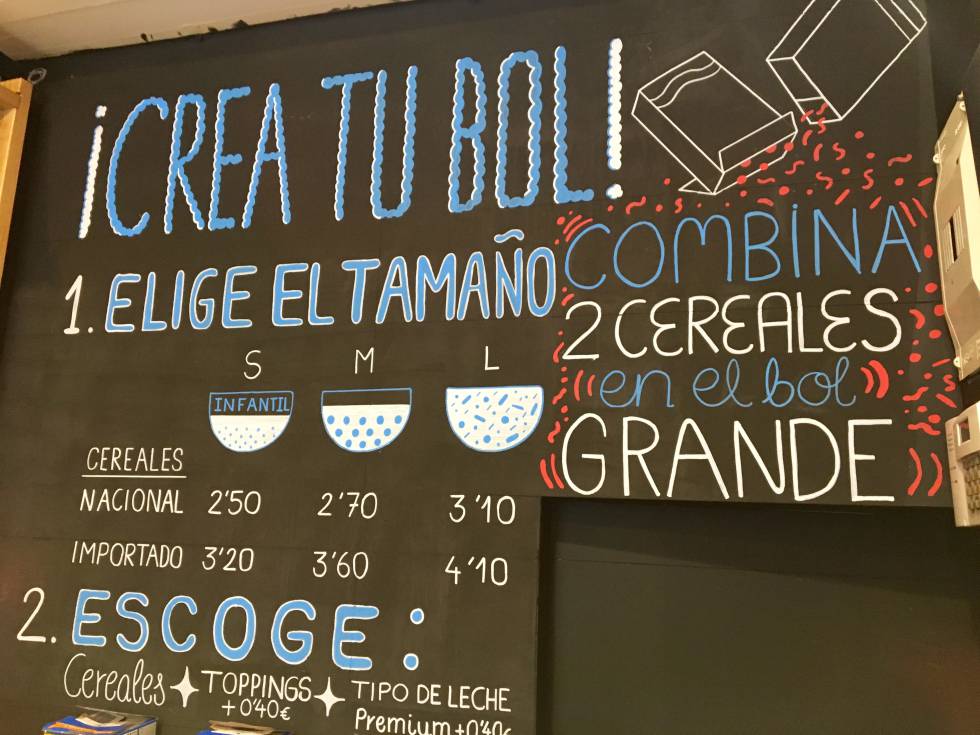 ¡CREA TU BOL!
1. ELIGE EL TAMAÑO
S M L
INFANTIL
CEREALES
NACIONAL 2'50 2'70 3'10
IMPORTADO 3'20 3'60 4'10
COMBINA
2 CEREALES
en el bol
GRANDE
2. ESCOGE:
Cereales TOPPINGS TIPO DE LECHE
+0'40€ Premium +0'40€